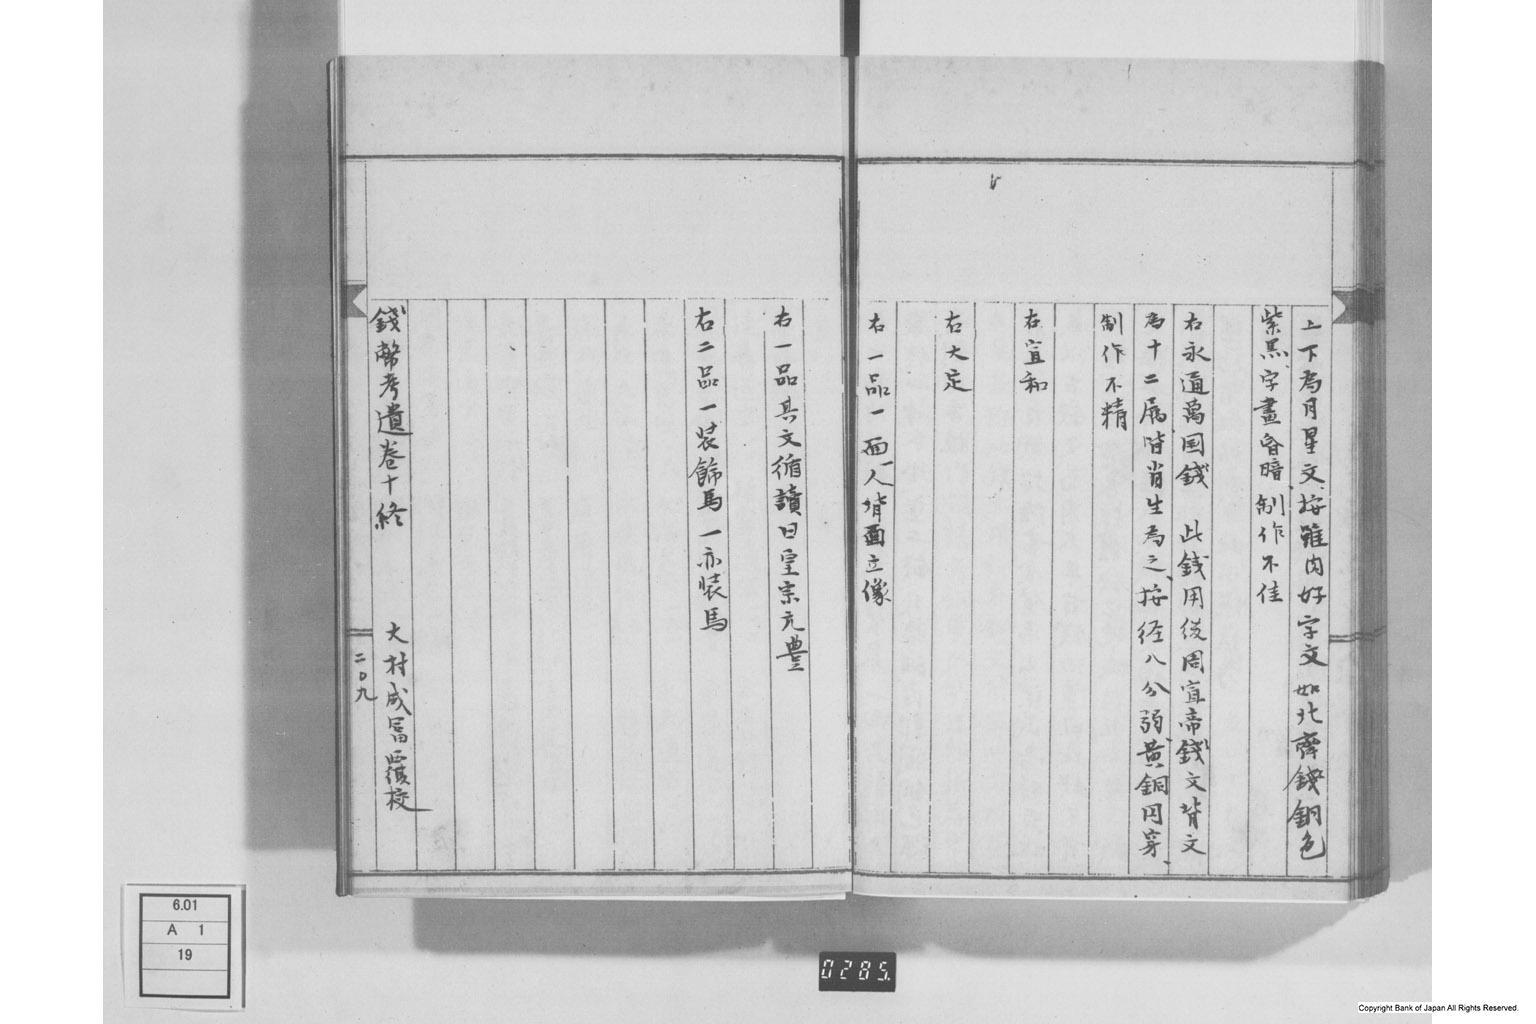 上下為月星文、按雖肉好字文如北齊錢銅色
紫黒、字畫昏暗、制作不佳
右永通萬国錢　此錢用後周宣帝錢文背文
為十二属皆肖生為之、按径八分弱、黄銅円穿、
制作不精
右宣和
右大定
右一品一面一人背面立像
右一品其文循讀曰皇宗元豊
右二品一装飾馬一亦装馬
錢幣考遺巻十終　　大村成富覆校
二〇九
6.01
A 1
19
0285
Copyright Bank of Japan All Rights Reserved.